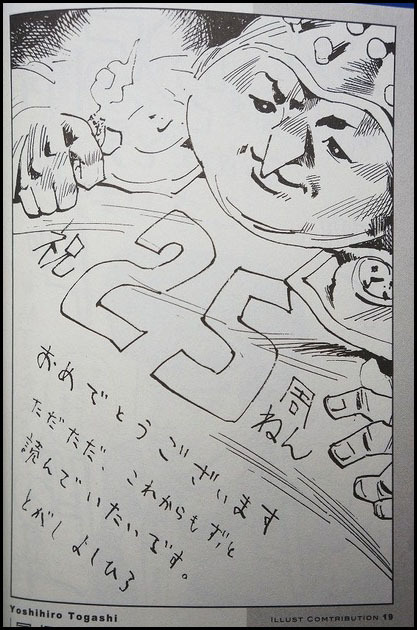 祝
25
周
ねん
おめでとうございます
ただただ、これからもずっと
読んでいたいです。
とがしよしひろ
Yoshihiro Togashi
ILLUST COMTRIBUTION 19